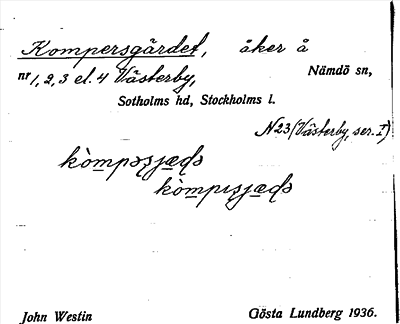 Kompersgärdet, åker å
nr 1, 2, 3 el. 4 Västerby, Nämdö sn,
Sotholms hd, Stockholms l.
N23 (Västerby, ser. I)
John Westin Gösta Lundberg 1936.